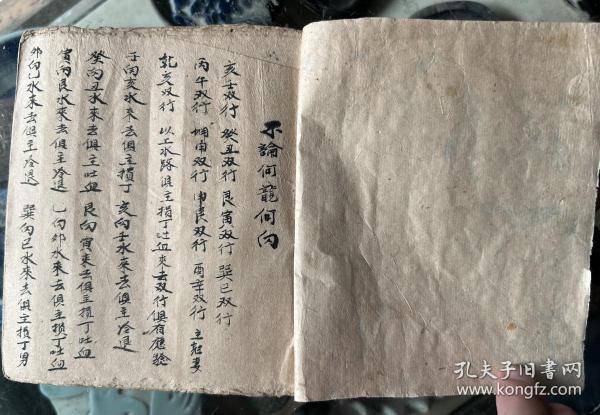 不論何龍何向
亥壬双行 癸丑双行 艮寅双行 巽巳双行
丙午双行 坤申双行 申艮双行 酉辛双行 主老妻
乾亥双行 以上水路俱主損丁吐血來去双行俱有應驗
壬向亥水來去俱主損丁 亥向壬水來去俱主冷退
癸向丑水來去俱主吐血 艮向寅來去俱主損丁吐血
寅向艮水來去俱主冷退 乙向卯水來去俱主損丁吐血
卯向乙水來去俱主冷退 巽向巳水來去俱主損丁男
孔夫子旧书网
www.kongfz.com